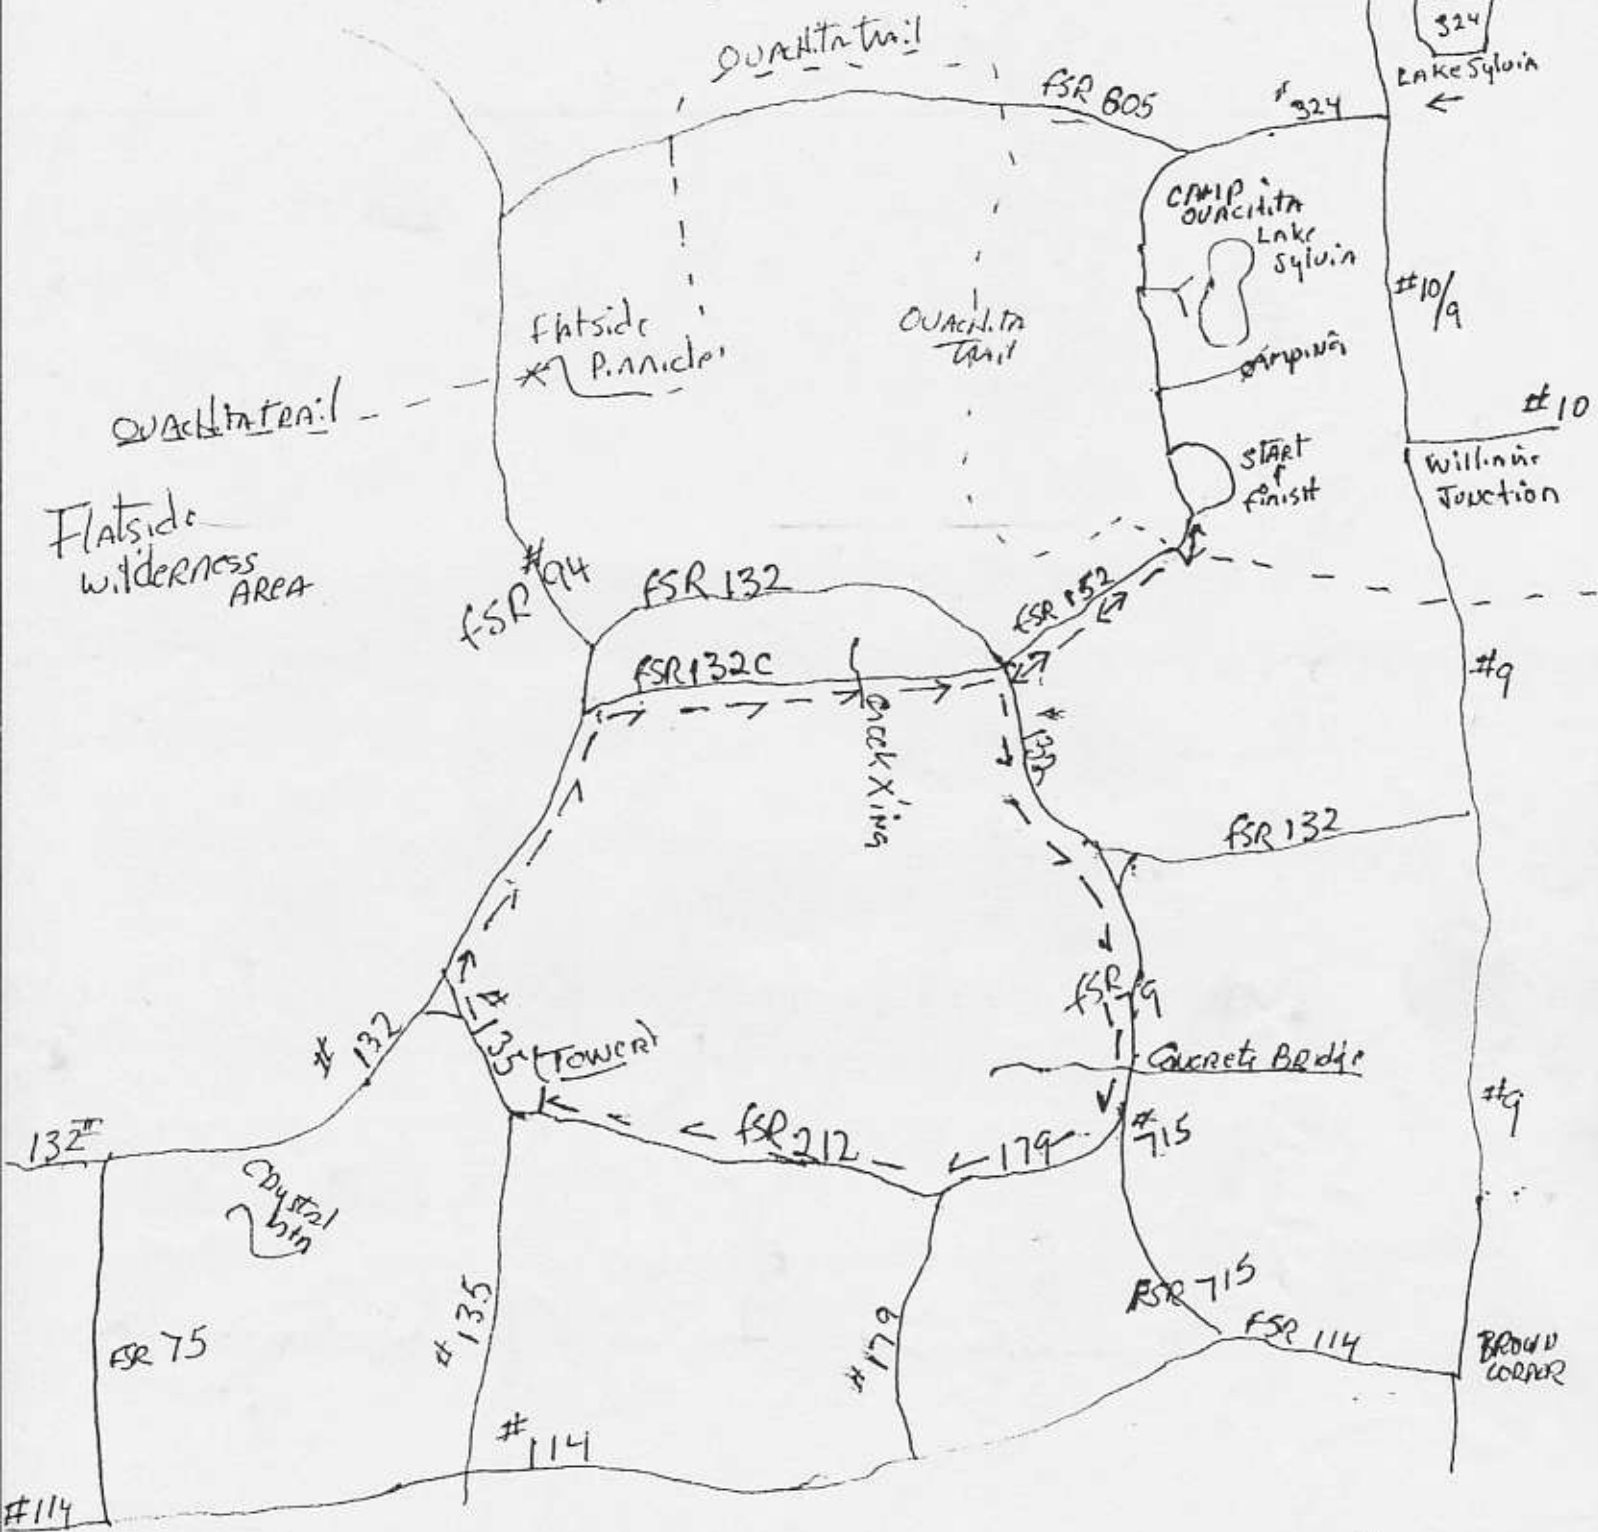 OUACHITA TRAIL
324
LAKE SYLVIA
FSR 805
# 324
CAMP
OUACHITA
LAKE
SYLVIA
#10/9
FLATSIDE
PINNICLE
OUACHITA
TRAIL
CAMPING
OUACHITA TRAIL
#10
START
&
FINISH
WILLIAMS
JUNCTION
FLATSIDE
WILDERNESS
AREA
FSR #94
FSR 132
FSR 152
FSR 132C
#9
CREEK X'ING
# 132
FSR 132
FSR 179
# 132
# 135
(TOWER)
CONCRETE BRIDGE
#9
132
FSR 212
179
# 715
CRYSTAL
MTN
# 135
FSR 715
# 179
FSR 114
FSR 75
BROWN
CORNER
# 114
#114